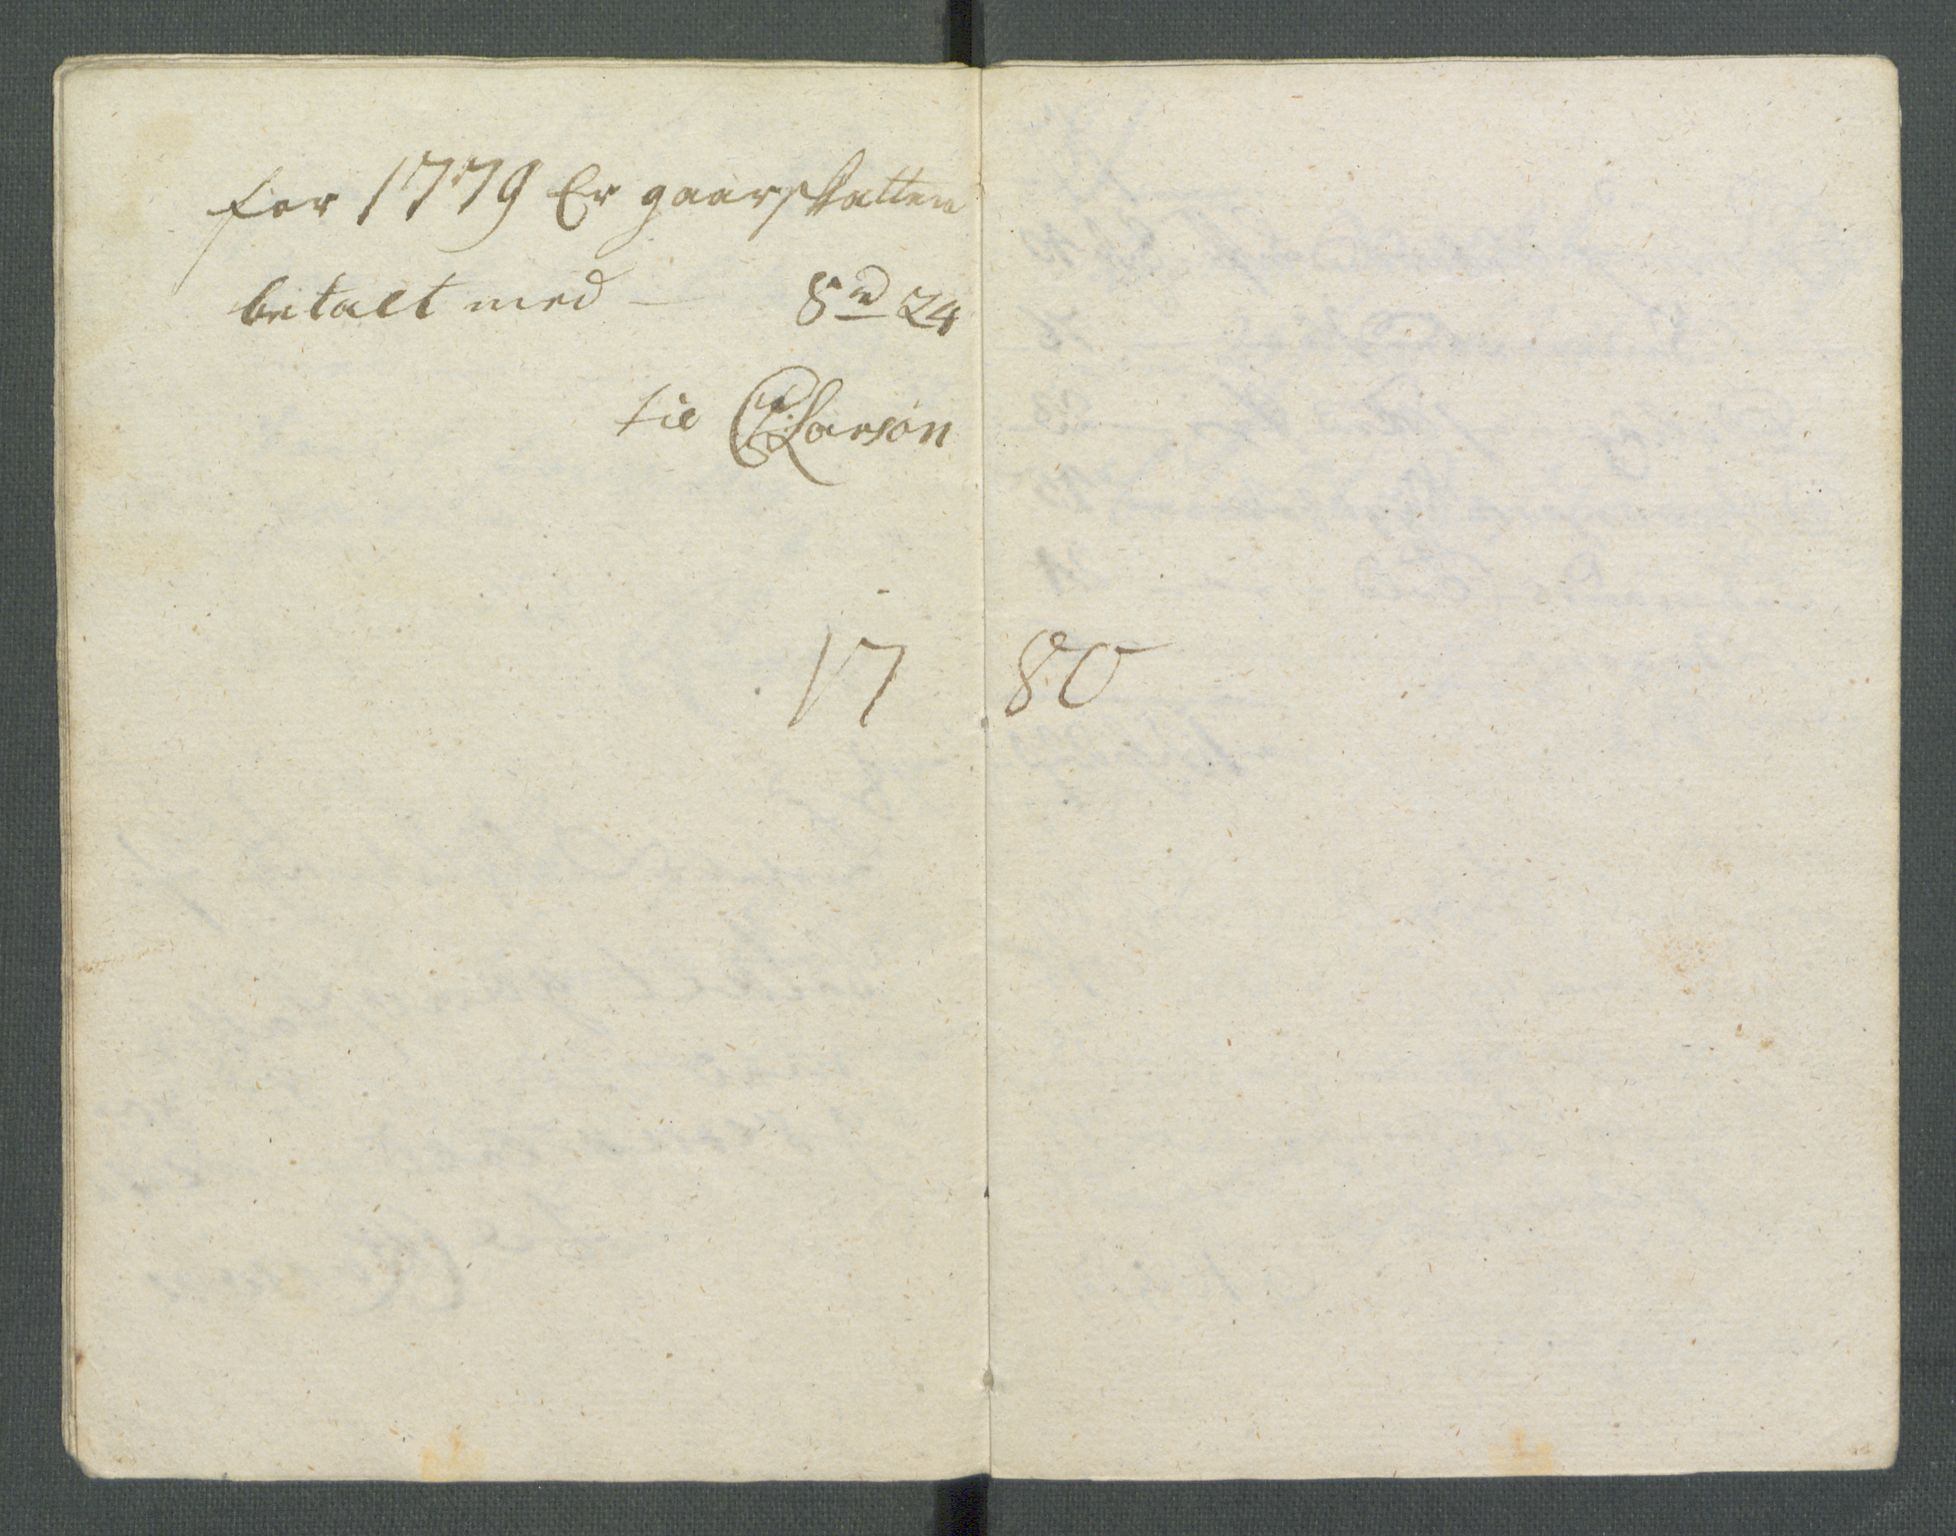 for 1779 Er gaarskatten
betalt med — 8 rd 24
til CLarsøn
17 80